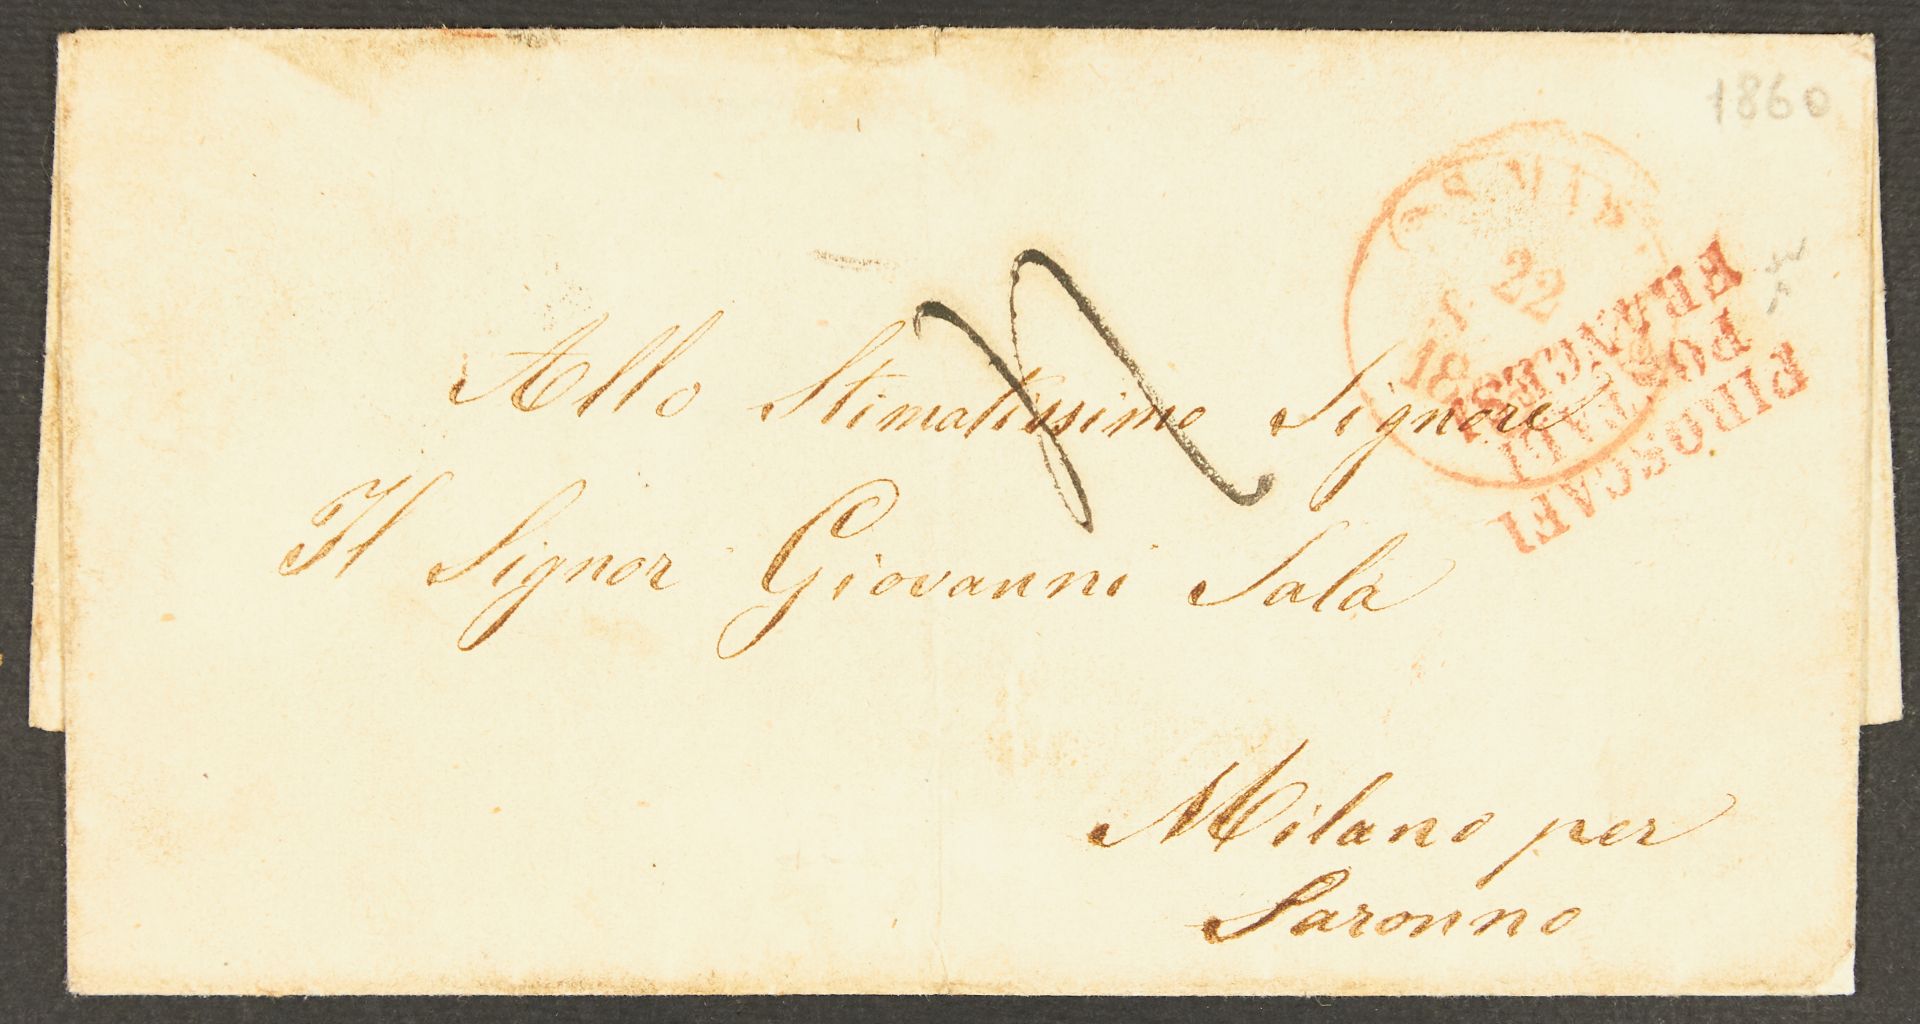 1860
22
18
PIROSCAFI
POSTALI
FRANCESI
Allo Stimatissimo Signore
Il Signor Giovanni Sala
Milano per
Saronno